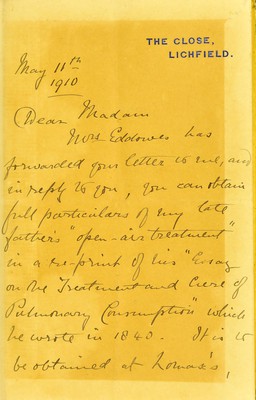 THE CLOSE,
LICHFIELD.
May 11th
1910
Dear Madam
Mrs Eddowes has
forwarded your letter to me, and
in reply to you, you can obtain
full particulars of my late
father's "open-air treatment"
in a re-print of his "Essay
on the Treatment and Cure of
Pulmonary Consumption" which
he wrote in 1840. It is to
be obtained at Lomax's,